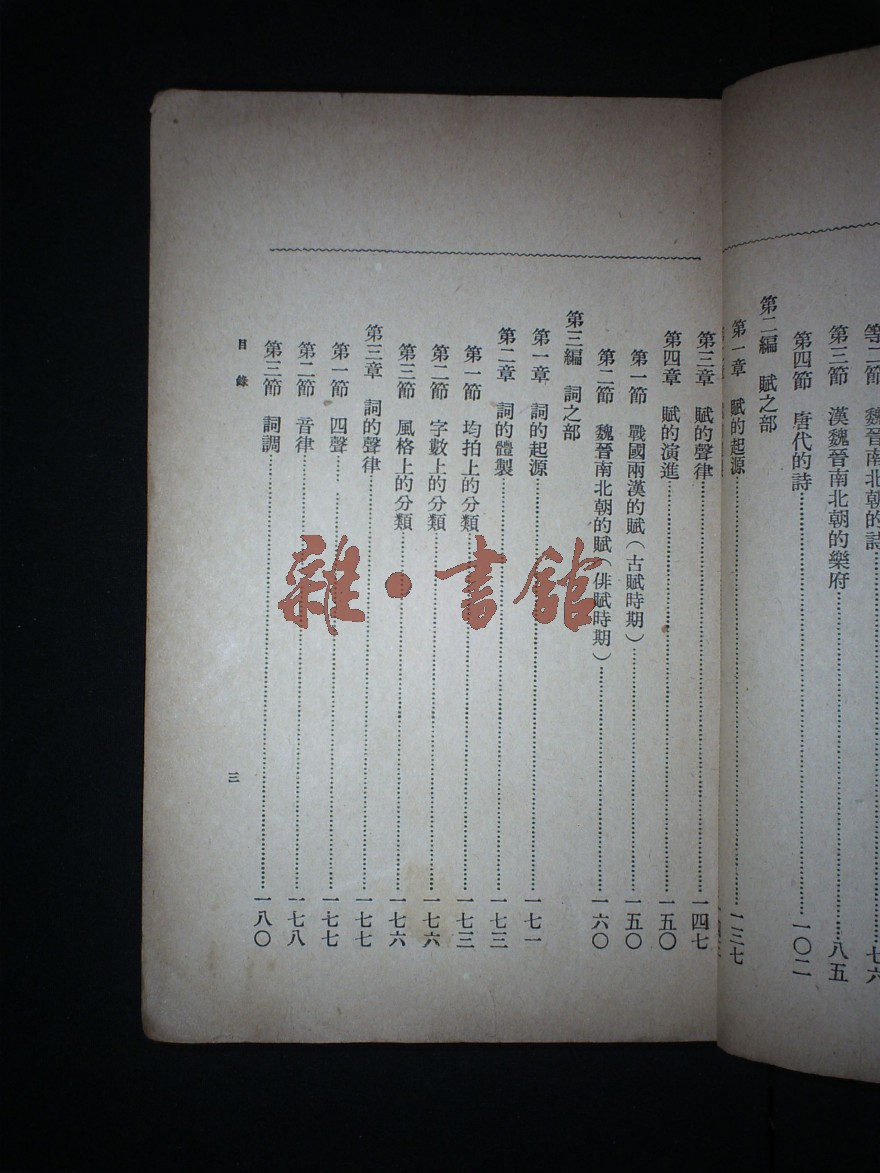 第三節　漢魏晉南北朝的樂府……八五
第四節　唐代的詩……一〇二
第二編　賦之部
第一章　賦的起源……一三七
第三章　賦的聲律……一四七
第四章　賦的演進……一五〇
第一節　戰國兩漢的賦（古賦時期）……一五〇
第二節　魏晉南北朝的賦（俳賦時期）……一六〇
第三編　詞之部
第一章　詞的起源……一七一
第二章　詞的體製……一七三
第一節　均拍上的分類……一七三
第二節　字數上的分類……一七六
第三節　風格上的分類……一七六
第三章　詞的聲律……一七七
第一節　四聲……一七七
第二節　音律……一七八
第三節　詞調……一八〇
目錄
三
雜·書館